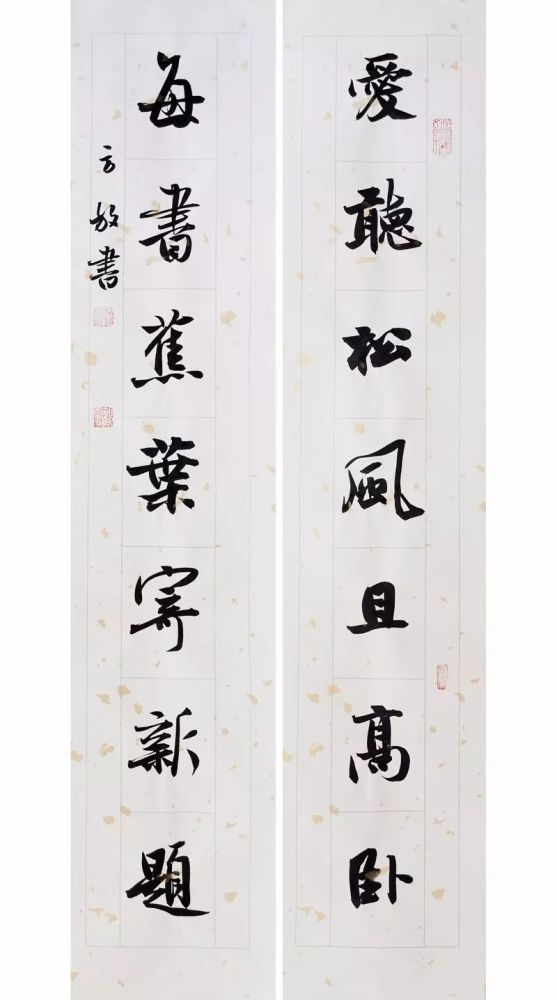 愛聽松風且高卧
每書蕉葉寄新題
方放書